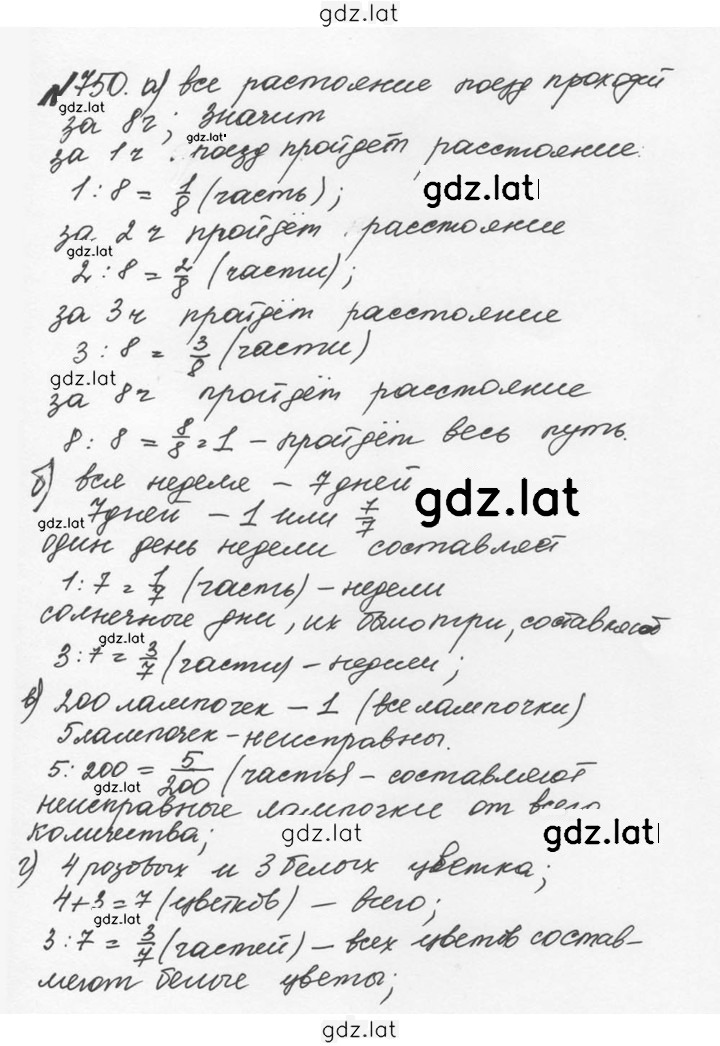 gdz.lat
№750. а) все растояние поезд проходит
gdz.lat
за 8ч; значит
gdz.lat
за 1ч. поезд пройдет расстояние:
1 : 8 = 1/8 (часть);
gdz.lat
за 2ч пройдёт расстояние
gdz.lat
2 : 8 = 2/8 (части);
за 3ч пройдёт расстояние
3 : 8 = 3/8 (части)
gdz.lat
за 8ч пройдёт расстояние
8 : 8 = 8/8 = 1 – пройдёт весь путь.
б) вся неделя – 7 дней
gdz.lat
7 дней – 1 или 7/7
gdz.lat
один день недели составляет
1 : 7 = 1/7 (часть) – недели
солнечные дни, их было три, составляют
gdz.lat
3 : 7 = 3/7 (части) – недели;
в) 200 лампочек – 1 (все лампочки)
5 лампочек – неисправны.
5 : 200 = 5/200 (часть) – составляют
gdz.lat
неисправные лампочки от всего
количества;
gdz.lat
gdz.lat
г) 4 розовых и 3 белых цветка;
4+3=7 (цветков) – всего;
gdz.lat
3 : 7 = 3/7 (частей) – всех цветов состав-
ляют белые цветы;
gdz.lat